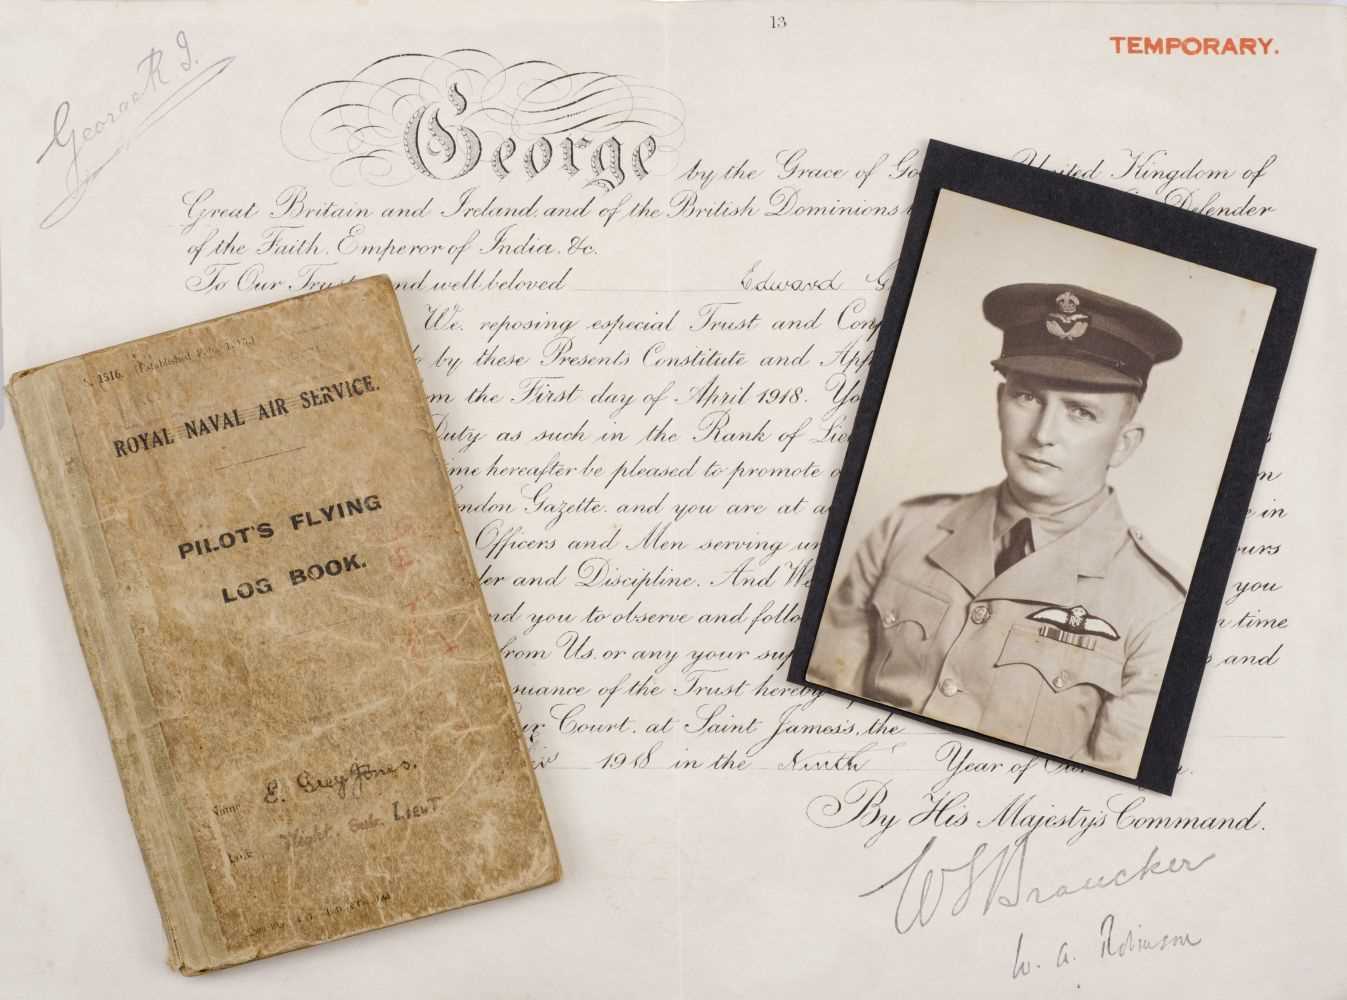 13
TEMPORARY.
George R. I.
George by the Grace of United Kingdom of
Great Britain and Ireland, and of the British Dominions Defender
of the Faith, Emperor of India, &c.
To Our and well beloved Edward
We, reposing especial Trust and
by these Presents Constitute and
the First day of April 1918. You
Duty as such in the Rank of
hereafter be pleased to promote
Gazette, and you are at in
Officers and Men serving
and Discipline. And We you
you to observe and time
from Us, or any your and
of the Trust
Court, at Saint James's, the
1918 in the Ninth Year of
By His Majesty's Command.
W S Brancker
W. A. Robinson
S. 1516. (Established
ROYAL NAVAL AIR SERVICE.
PILOT'S FLYING
LOG BOOK.
Name E. Grey Jones.
Flight Sub. LIEUT